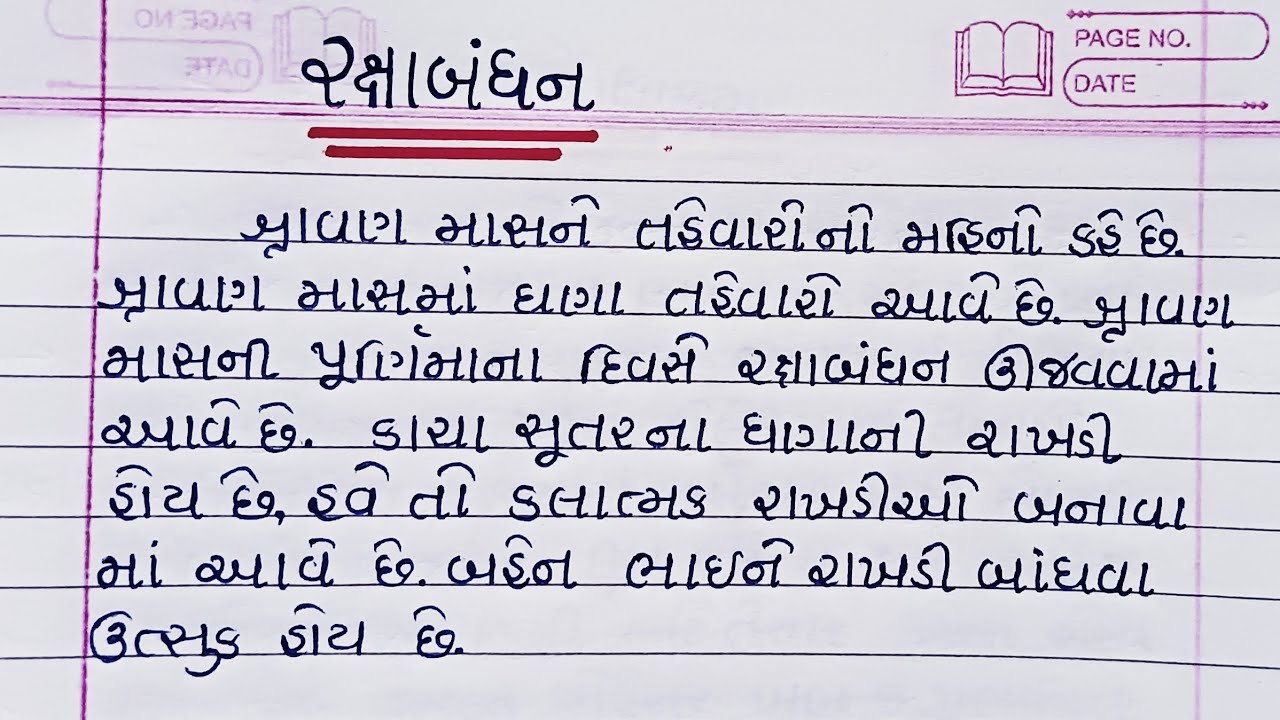 PAGE NO.
DATE
રક્ષાબંધન
શ્રાવણ માસને તહેવારોનો મહિનો કહે છે.
શ્રાવણ માસમાં ઘણા તહેવારો આવે છે. શ્રાવણ
માસની પૂર્ણિમાના દિવસે રક્ષાબંધન ઊજવવામાં
આવે છે. કાચા સૂતરના ધાગાની રાખડી
હોય છે, હવે તો કલાત્મક રાખડીઓ બનાવા
માં આવે છે. બહેન ભાઇને રાખડી બાંધવા
ઉત્સુક હોય છે.